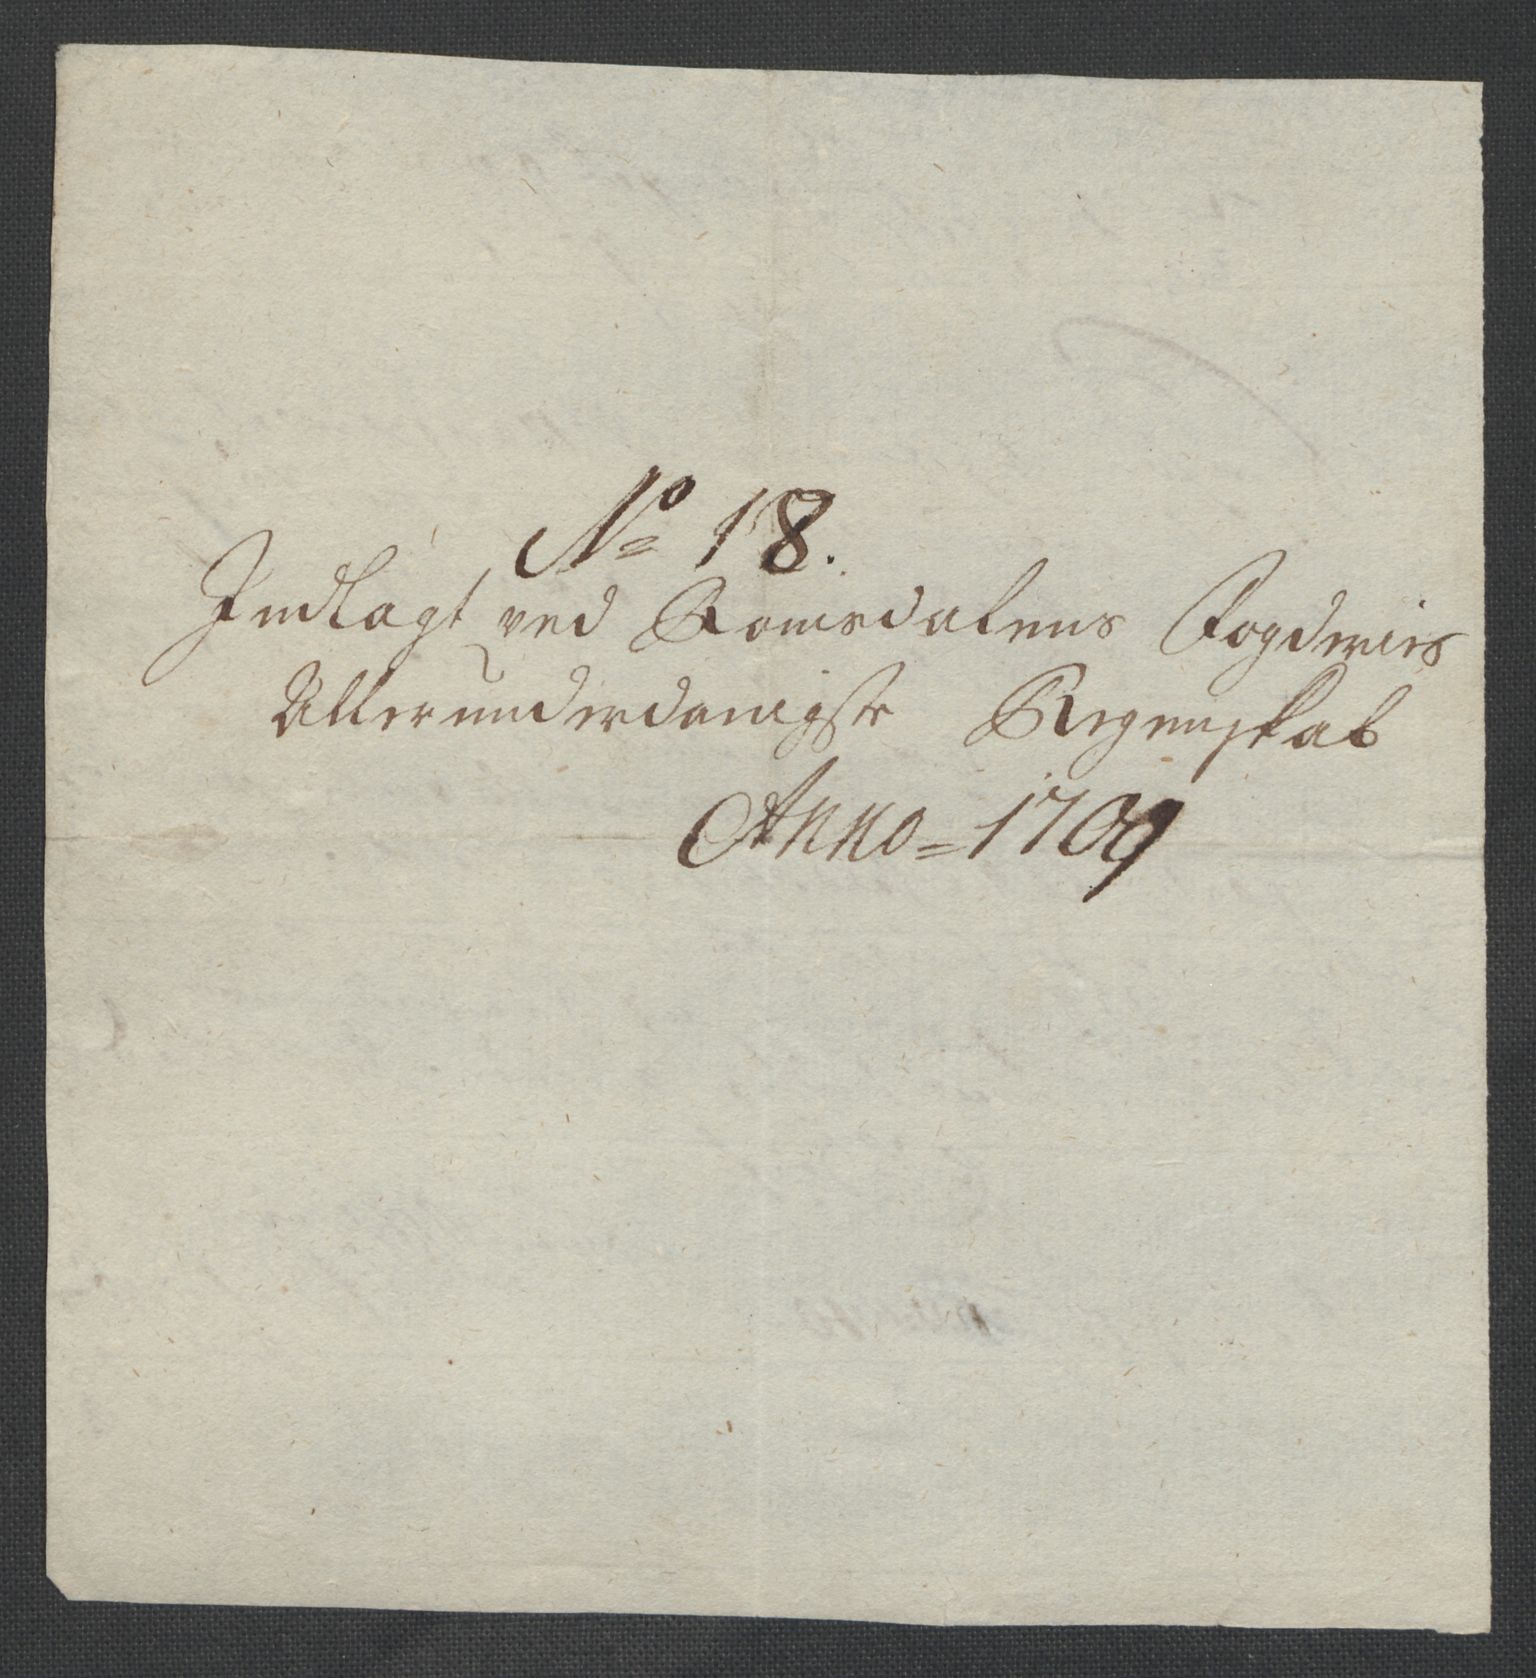 No 18.
Indlagt ved Romsdalens Fogderies
Allerunderdanigste Regenskab
Anno = 1709